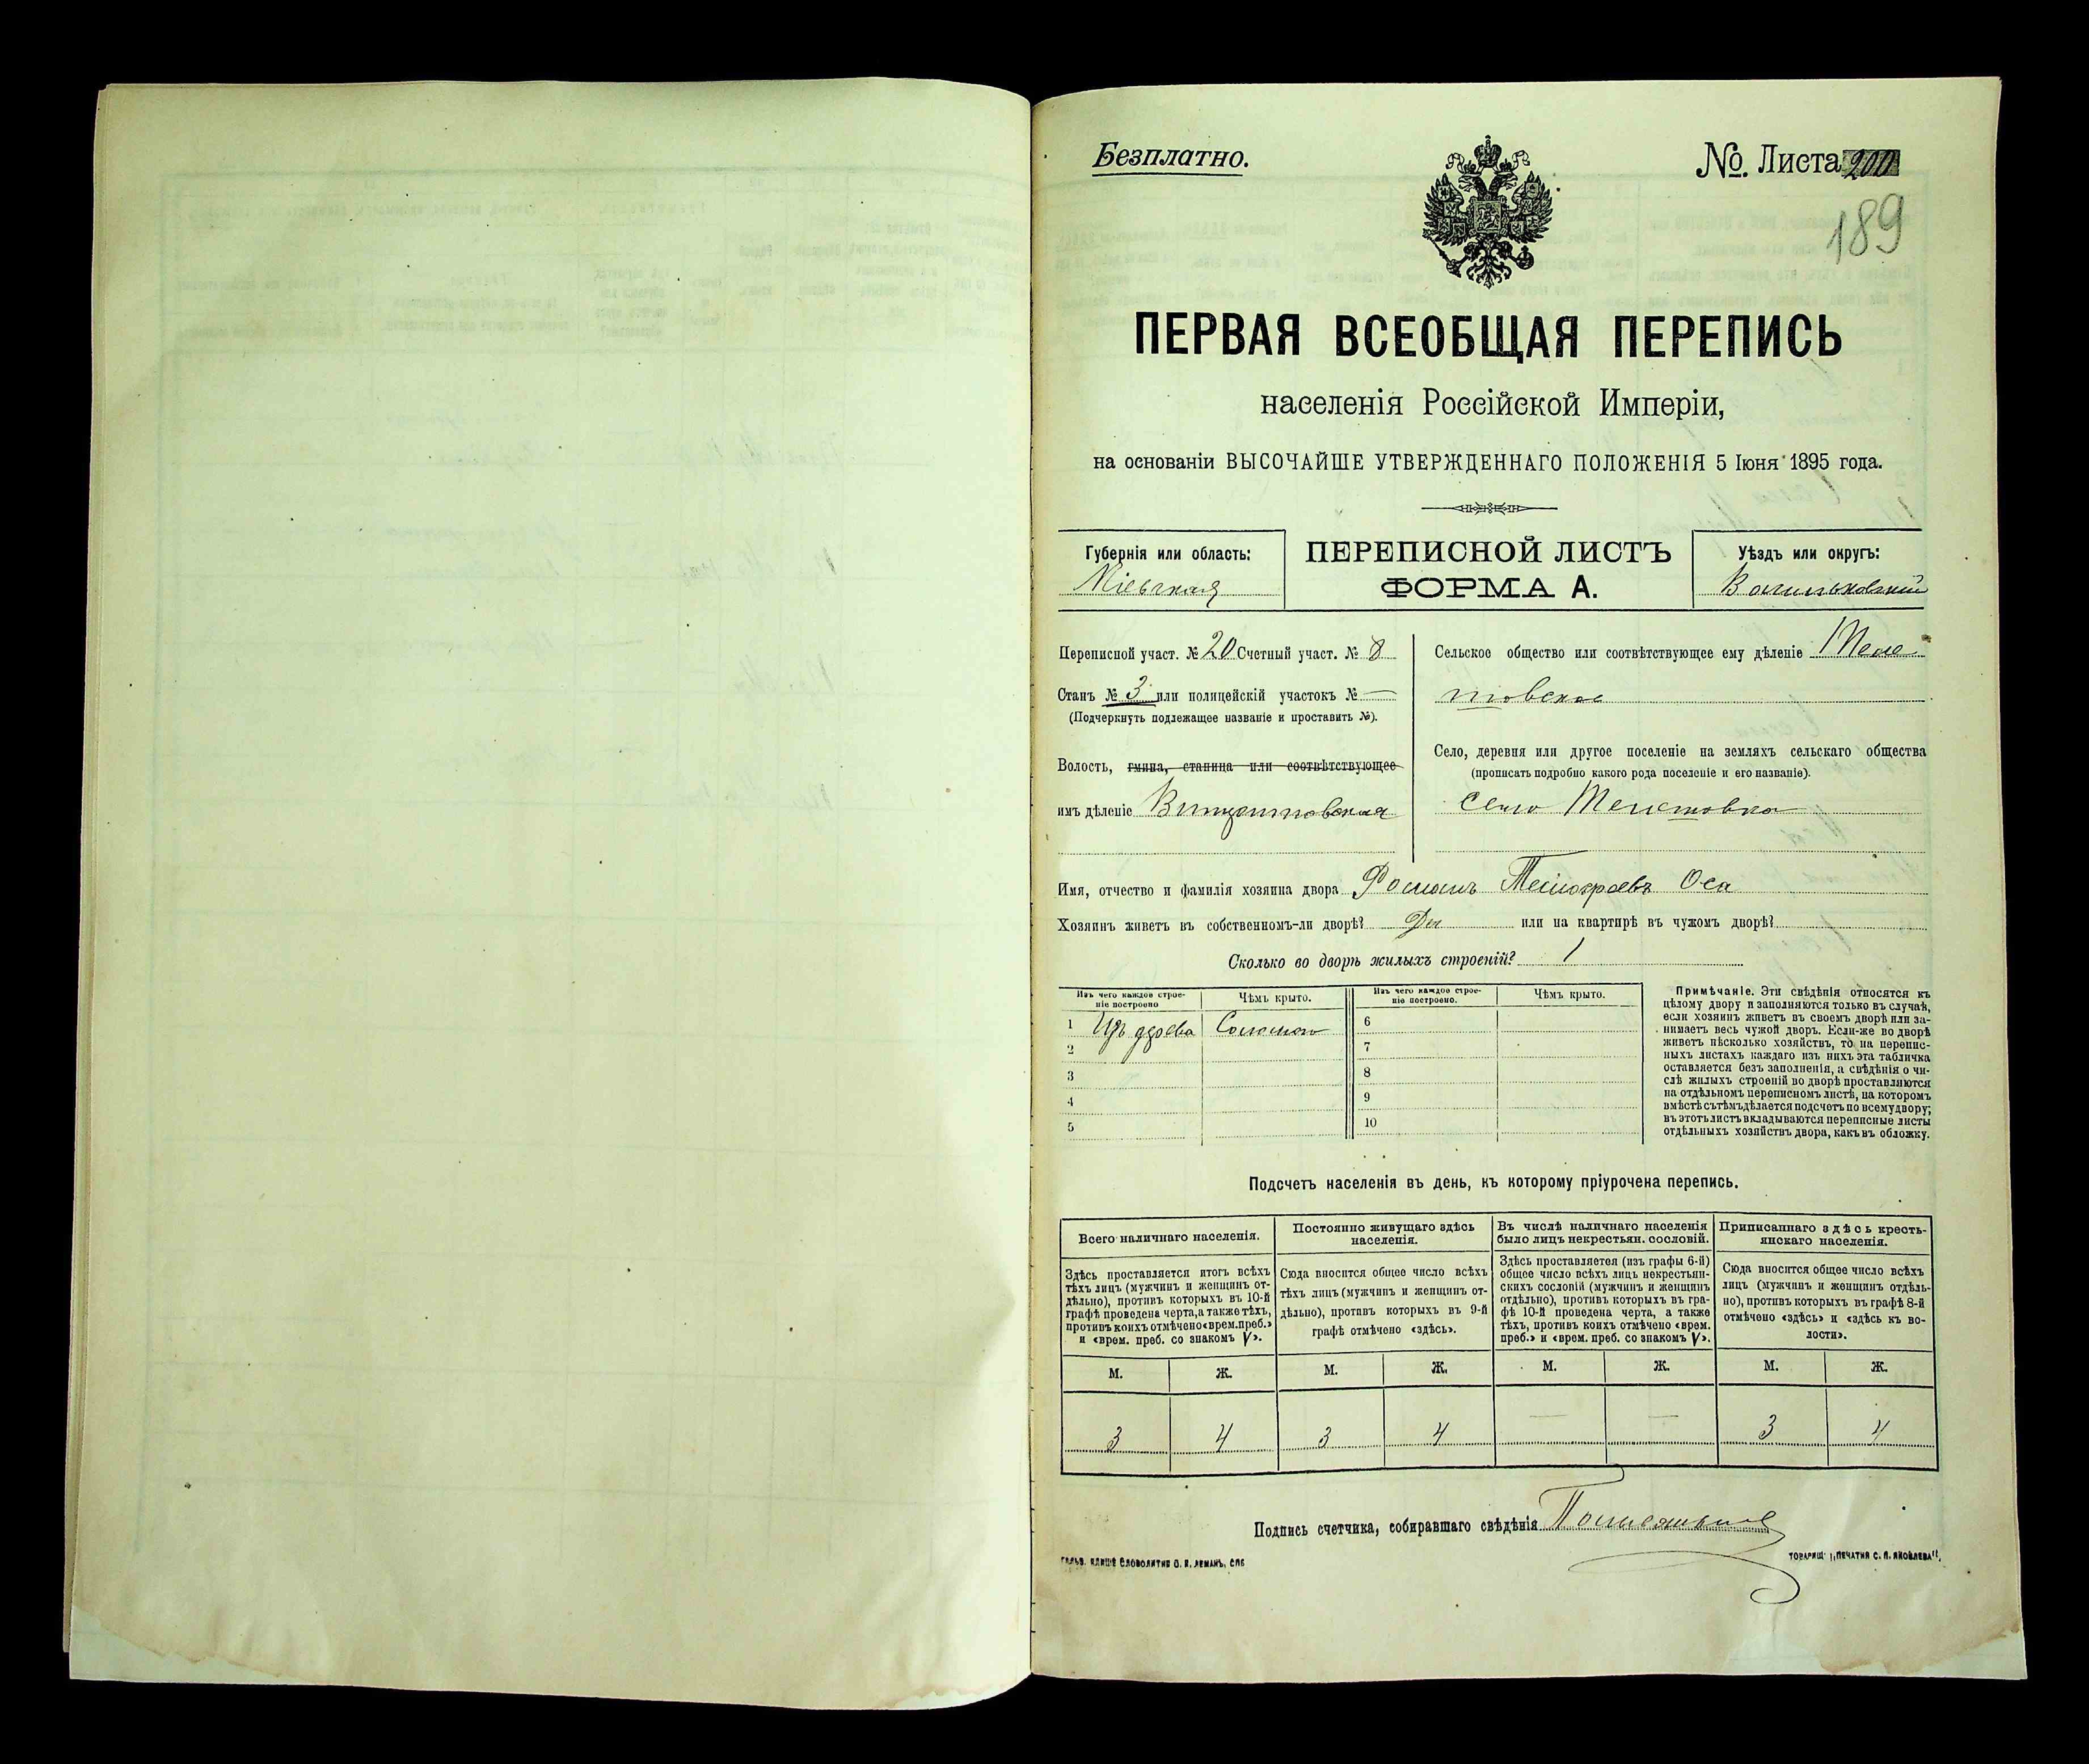 Безплатно.
№. Листа 200
189
ПЕРВАЯ ВСЕОБЩАЯ ПЕРЕПИСЬ
населенія Россійской Имперіи,
на основаніи ВЫСОЧАЙШЕ УТВЕРЖДЕННАГО ПОЛОЖЕНІЯ 5 Іюня 1895 года.
Губернія или область:
Кіевская
ПЕРЕПИСНОЙ ЛИСТЪ
ФОРМА А.
Уѣздъ или округъ:
Васильковскій
Переписной участ. № 20 Счетный участ. № 8
Станъ № 3 или полицейскій участокъ № —
(Подчеркнуть подлежащее названіе и проставить №).
Волость, гмина, станица или соотвѣтствующее
имъ дѣленіе Винцентовская
Сельское общество или соотвѣтствующее ему дѣленіе
товское
Село, деревня или другое поселеніе на земляхъ сельскаго общества
(прописать подробно какого рода поселеніе и его названіе).
село
Имя, отчество и фамилія хозяина двора Романъ Оса
Хозяинъ живетъ въ собственномъ-ли дворѣ? Да или на квартирѣ въ чужомъ дворѣ?
Сколько во дворѣ жилыхъ строеній? 1
Изъ чего каждое строе-
ніе построено
Чѣмъ крыто.
1 Изъ дерева Соломою
2
3
4
5
Изъ чего каждое строе-
ніе построено.
Чѣмъ крыто.
6
7
8
9
10
Примѣчаніе. Эти свѣдѣнія относятся къ
цѣлому двору и заполняются только въ случаѣ,
если хозяинъ живетъ въ своемъ дворѣ или за-
нимаетъ весь чужой дворъ. Если-же во дворѣ
живетъ нѣсколько хозяйствъ, то на перепис-
ныхъ листахъ каждаго изъ нихъ эта табличка
оставляется безъ заполненія, а свѣдѣнія о чи-
слѣ жилыхъ строеній во дворѣ проставляются
на отдѣльномъ переписномъ листѣ, на которомъ
вмѣстѣ съ тѣмъ дѣлается подсчетъ по всему двору;
въ этотъ листъ вкладываются переписные листы
отдѣльныхъ хозяйствъ двора, какъ въ обложку.
Подсчетъ населенія въ день, къ которому пріурочена перепись.
Всего наличнаго населенія.
Здѣсь проставляется итогъ всѣхъ
тѣхъ лицъ (мужчинъ и женщинъ от-
дѣльно), противъ которыхъ въ 10-й
графѣ проведена черта, а также тѣхъ,
противъ коихъ отмѣчено «врем. преб.»
и «врем. преб. со знакомъ V».
Постоянно живущаго здѣсь
населенія.
Сюда вносится общее число всѣхъ
тѣхъ лицъ (мужчинъ и женщинъ от-
дѣльно), противъ которыхъ въ 9-й
графѣ отмѣчено «здѣсь».
Въ числѣ наличнаго населенія
было лицъ некрестьян. сословій.
Здѣсь проставляется (изъ графы 6-й)
общее число всѣхъ лицъ некрестьян-
скихъ сословій (мужчинъ и женщинъ
отдѣльно), противъ которыхъ въ гра-
фѣ 10-й проведена черта, а также
тѣхъ, противъ коихъ отмѣчено «врем.
преб.» и «врем. преб. со знакомъ V».
Приписаннаго здѣсь кресть-
янскаго населенія.
Сюда вносится общее число всѣхъ
лицъ (мужчинъ и женщинъ отдѣль-
но), противъ которыхъ въ графѣ 8-й
отмѣчено «здѣсь» и «здѣсь къ во-
лости».
М. Ж. М. Ж. М. Ж. М. Ж.
3 4 3 4 — — 3 4
Подпись счетчика, собиравшаго свѣдѣнія
Словолитня О. И. ЛЕМАНЪ, СПБ
ТОВАРИЩ. „ПЕЧАТНЯ С. П. ЯКОВЛЕВА".